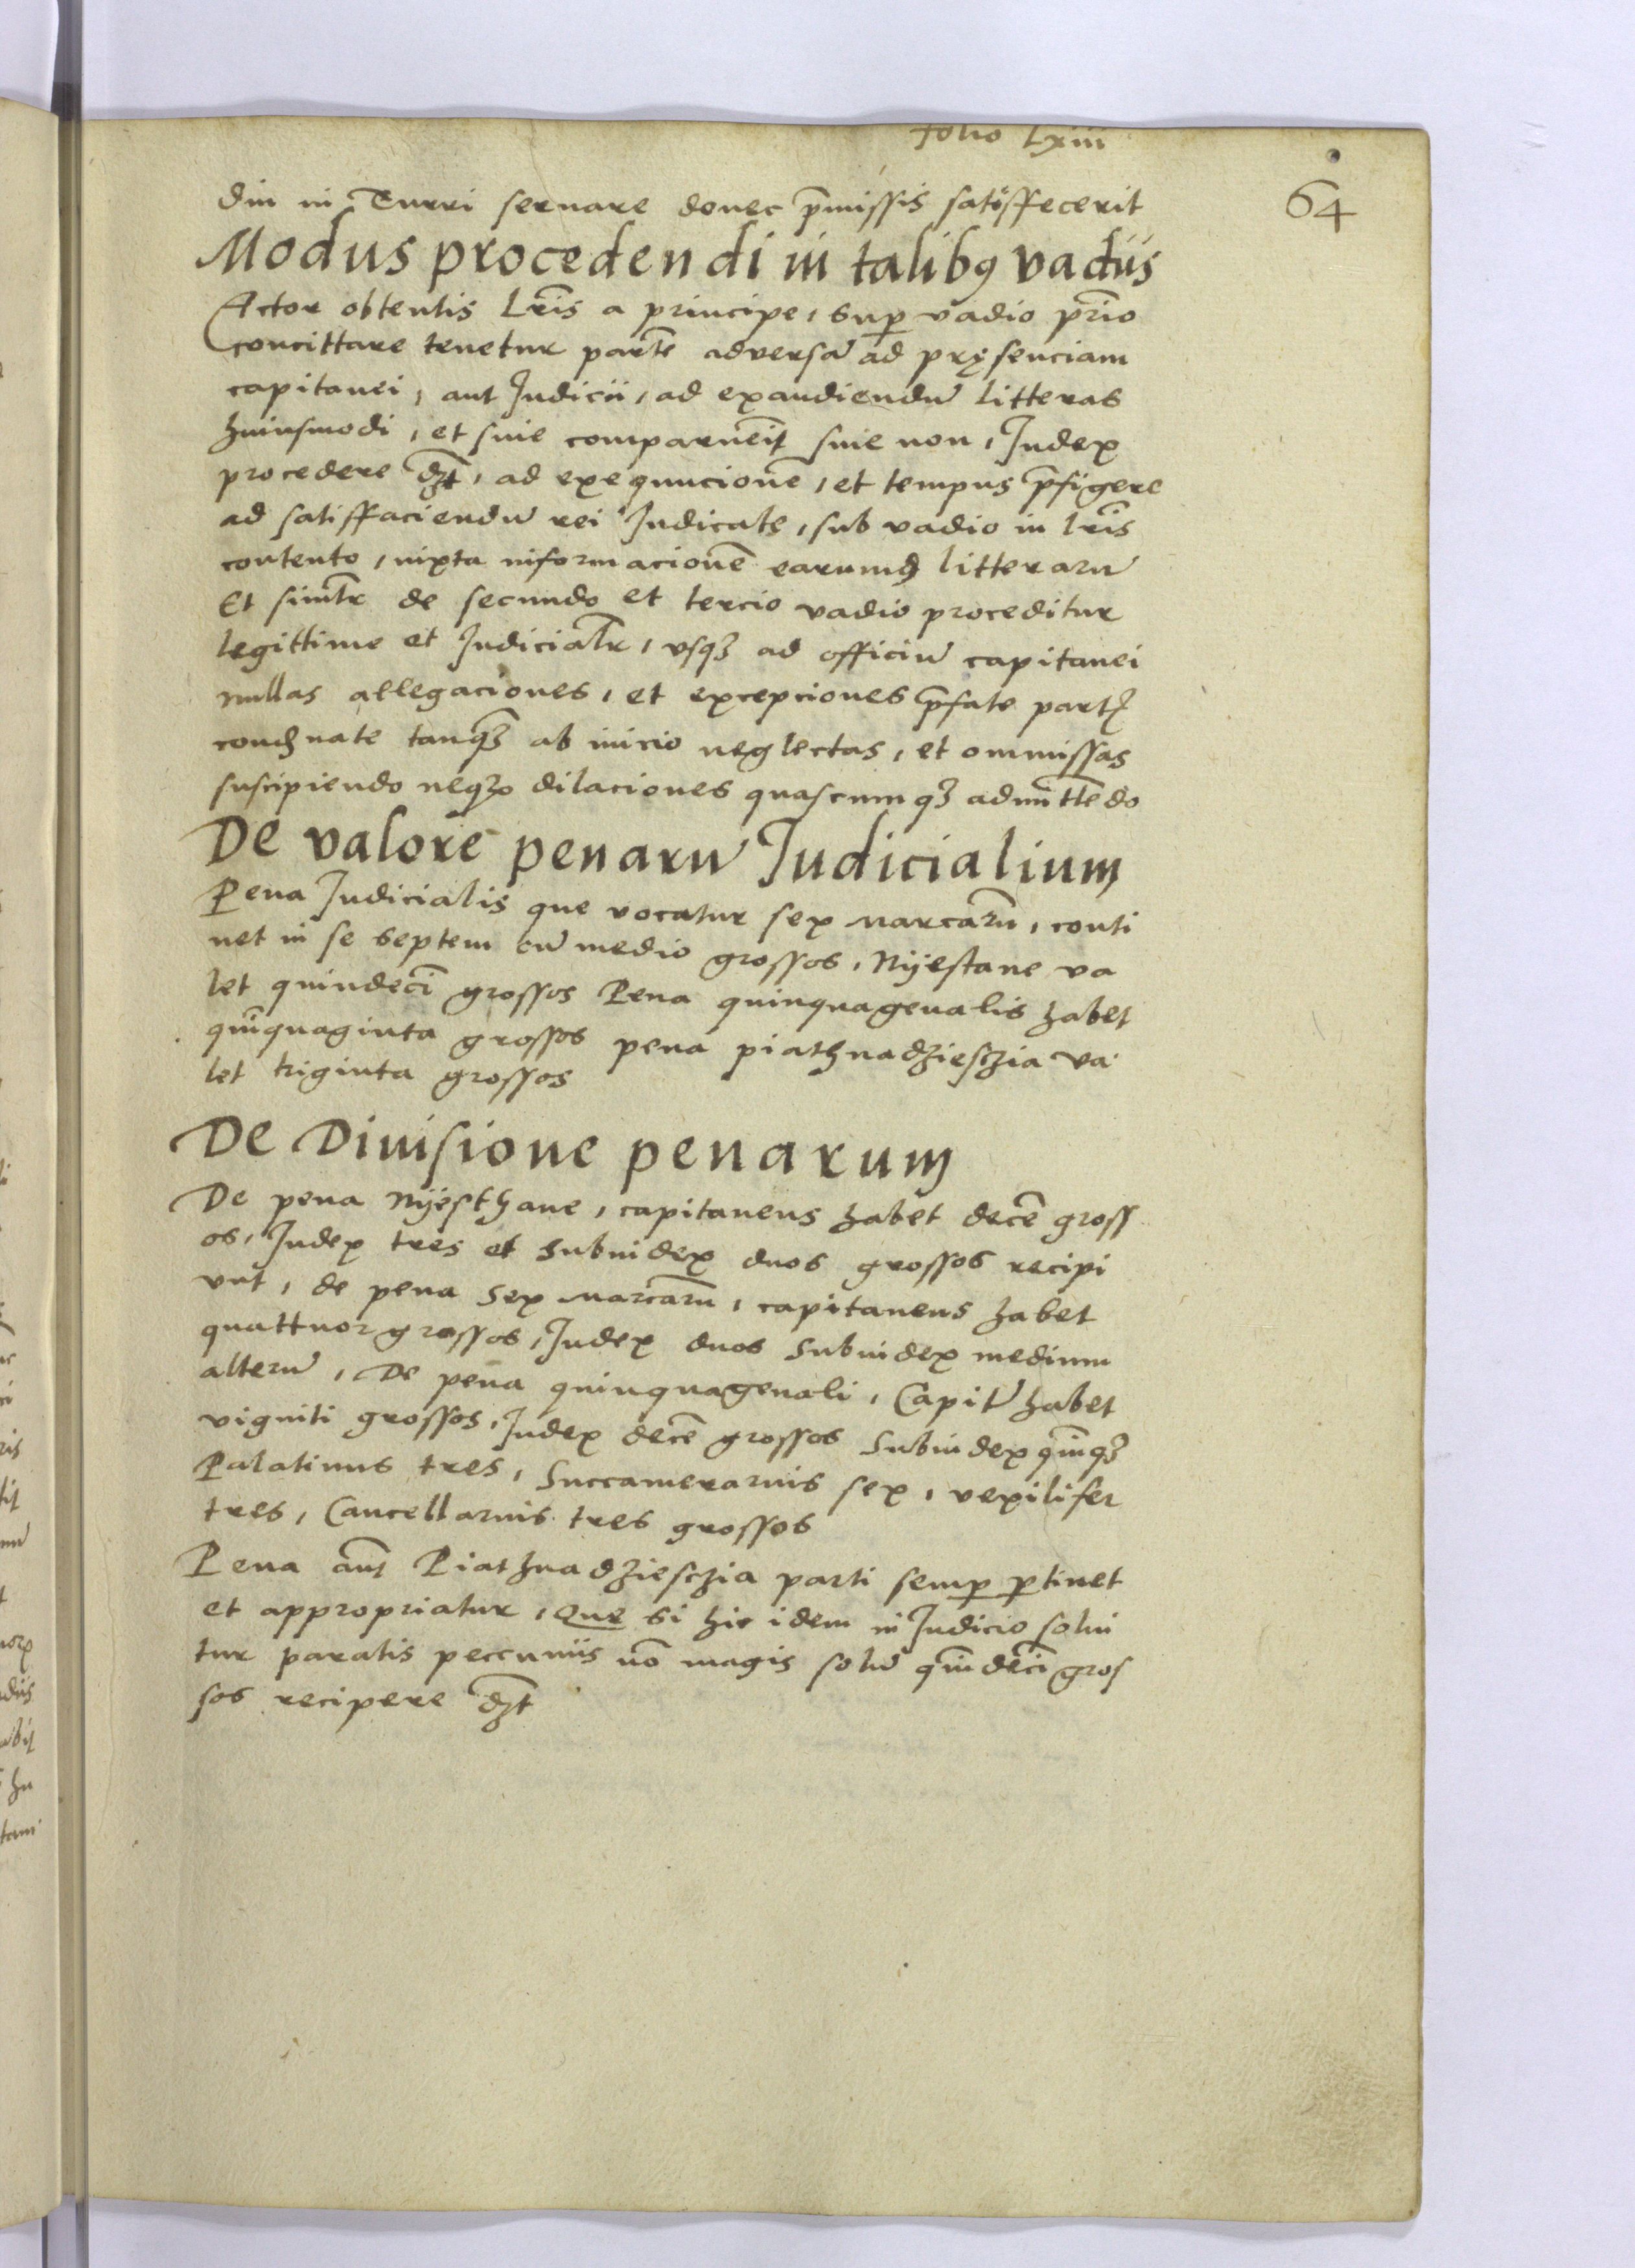 folio Lxiii
64
diu in Turri seruare donec p̄missis satisffecerit
Modus procedendi in talibꝰ vadiis
Actor obtentis Lr̄is a principe, Suꝑ vadio prīo
concittare tenetur part̄e adversā ad pręsenciam
capitanei, aut Judicii, ad exaudiendū litteras
huiusmodi, et siue comparuerīt siue non, Judex
procedere dꝫt̄, ad exequucionē, et tempus p̄figere
ad satisffaciendū rei Judicate, sub vadio in lr̄is
contento, iuxta informacionē earumd̄ litterarū
Et simlr̄ de secundo et tercio vadio proceditur
legittime et Judicialr̄, vsqꝫ ad officiū capitanei
nullas allegaciones, et excepciones p̄fate partꝭ
condn̄ate tanqꝫ ab inicio neglectas, et ommissas
suscipiendo neqꝫ dilaciones quascumqꝫ admittēdo
De valore penarū Judicialium
Pena Judicialis que vocatur sex marcarū, conti
net in se septem cū medio grossos, Nyestane va
let quindecī grossos Pena quinquagenalis habet
quīquaginta grossos pena piathnadzieschia va
let triginta grossos
De Diuisione penarum
De pena Nyesthane, capitaneus habet decē gross
os, Judex tres et Subiudex duos grossos recipi
unt, de pena Sex marcarū, capitaneus habet
quattuor grossos, Judex duos Subiudex medium
alterū, De pena quinquagenali, Capitꝰ habet
viginti grossos, Judex decē grossos Subiudex quīqꝫ
Palatinus tres, Succamerarius sex, vexilifer
tres, Cancellarius tres grossos
Pena aūt Piathnadzieschia parti semꝑ ꝑtinet
et appropriatur, Que si hic idem in Judicio solui
tur paratis peccuniis nō magis solū quīdecī gros
sos recipere dꝫt̄